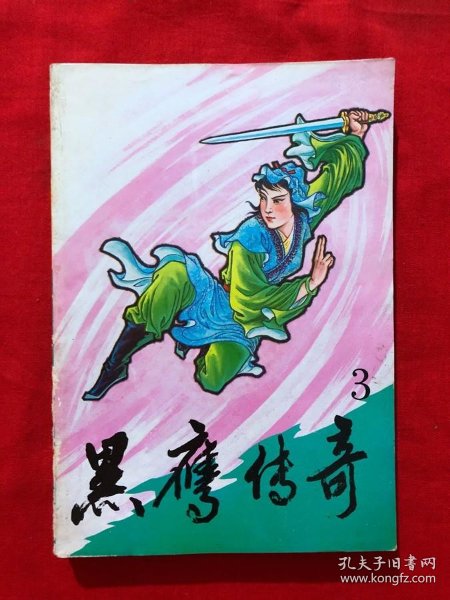 3
黑鹰传奇
孔夫子旧书网
www.kongfz.com